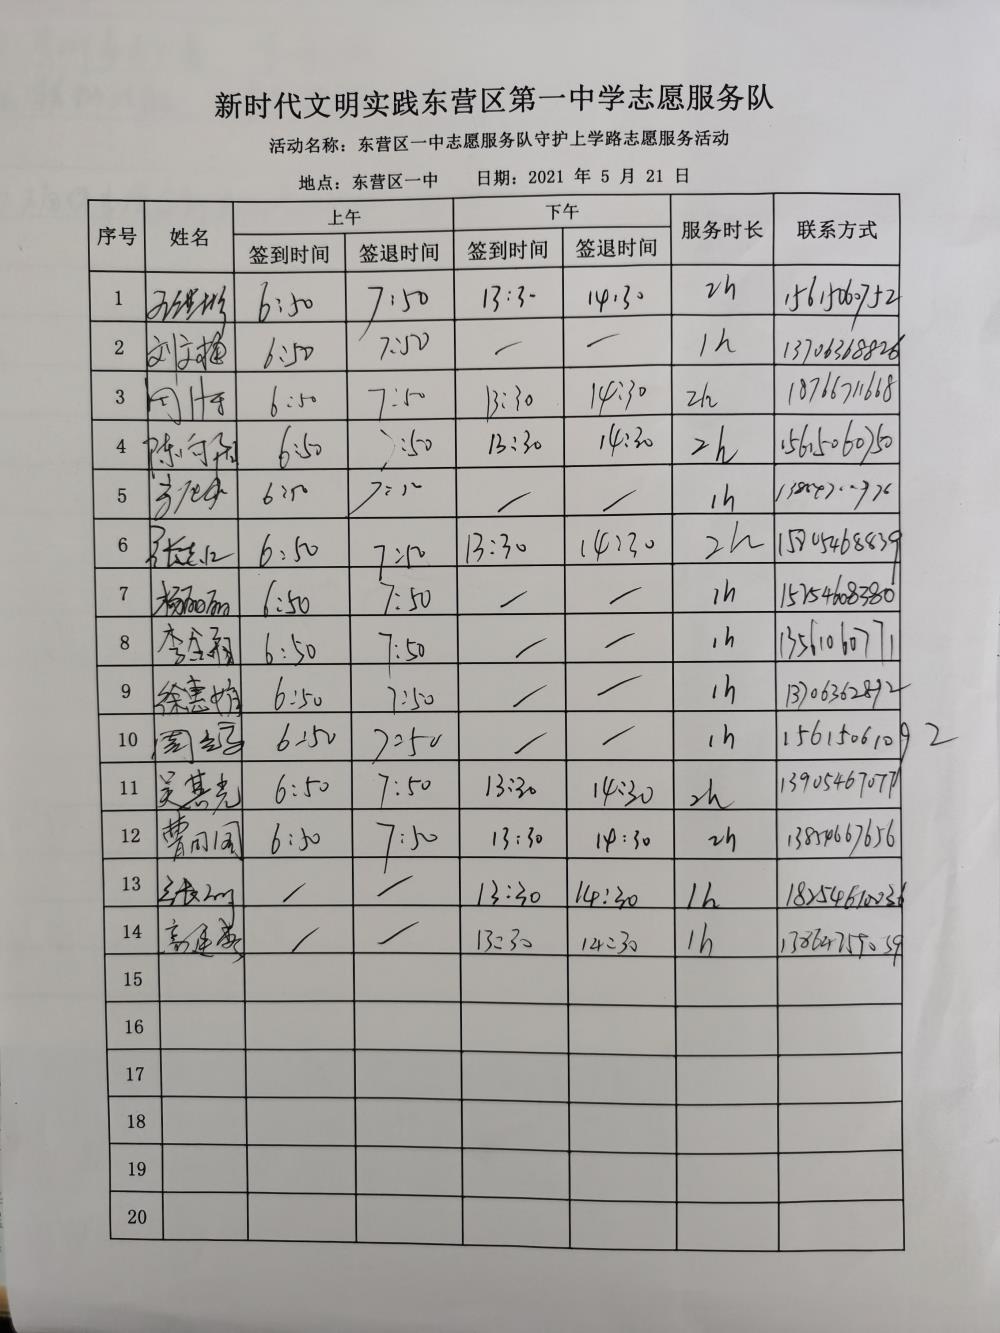 新时代文明实践东营区第一中学志愿服务队
活动名称：东营区一中志愿服务队守护上学路志愿服务活动
地点：东营区一中 日期：2021 年 5 月 21 日
序号 姓名 上午 下午 服务时长 联系方式
签到时间 签退时间 签到时间 签退时间
1 6:50 7:50 13:30 14:30 2h 15615060752
2 刘文梅 6:50 7:50 — — 1h 13706368826
3 6:50 7:50 13:30 14:30 2h 18766711668
4 6:50 7:50 13:30 14:30 2h 15615060750
5 6:50 / / 1h
6 6:50 7:50 13:30 14:30 2h 15805468839
7 杨丽丽 6:50 7:50 / / 1h 15754608380
8 6:50 7:50 / / 1h 13561060771
9 徐惠娟 6:50 7:50 / / 1h 13706362892
10 6:50 7:50 / / 1h 15615061092
11 吴其光 6:50 7:50 13:30 14:30 2h
12 曹同国 6:50 7:50 13:30 14:30 2h 13854667656
13 / / 13:30 14:30 1h 18254610036
14 / / 13:30 14:30 1h
15
16
17
18
19
20